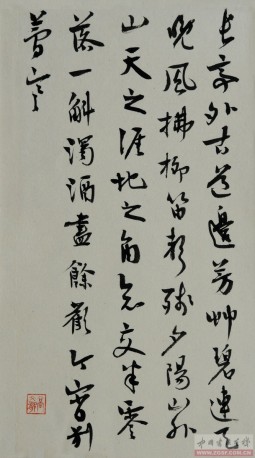 長亭外古道邊芳艸碧連天
晚風拂柳笛聲殘夕陽山外
山天之涯地之角知交半零
落一斛濁酒盡餘歡今宵別
夢寒